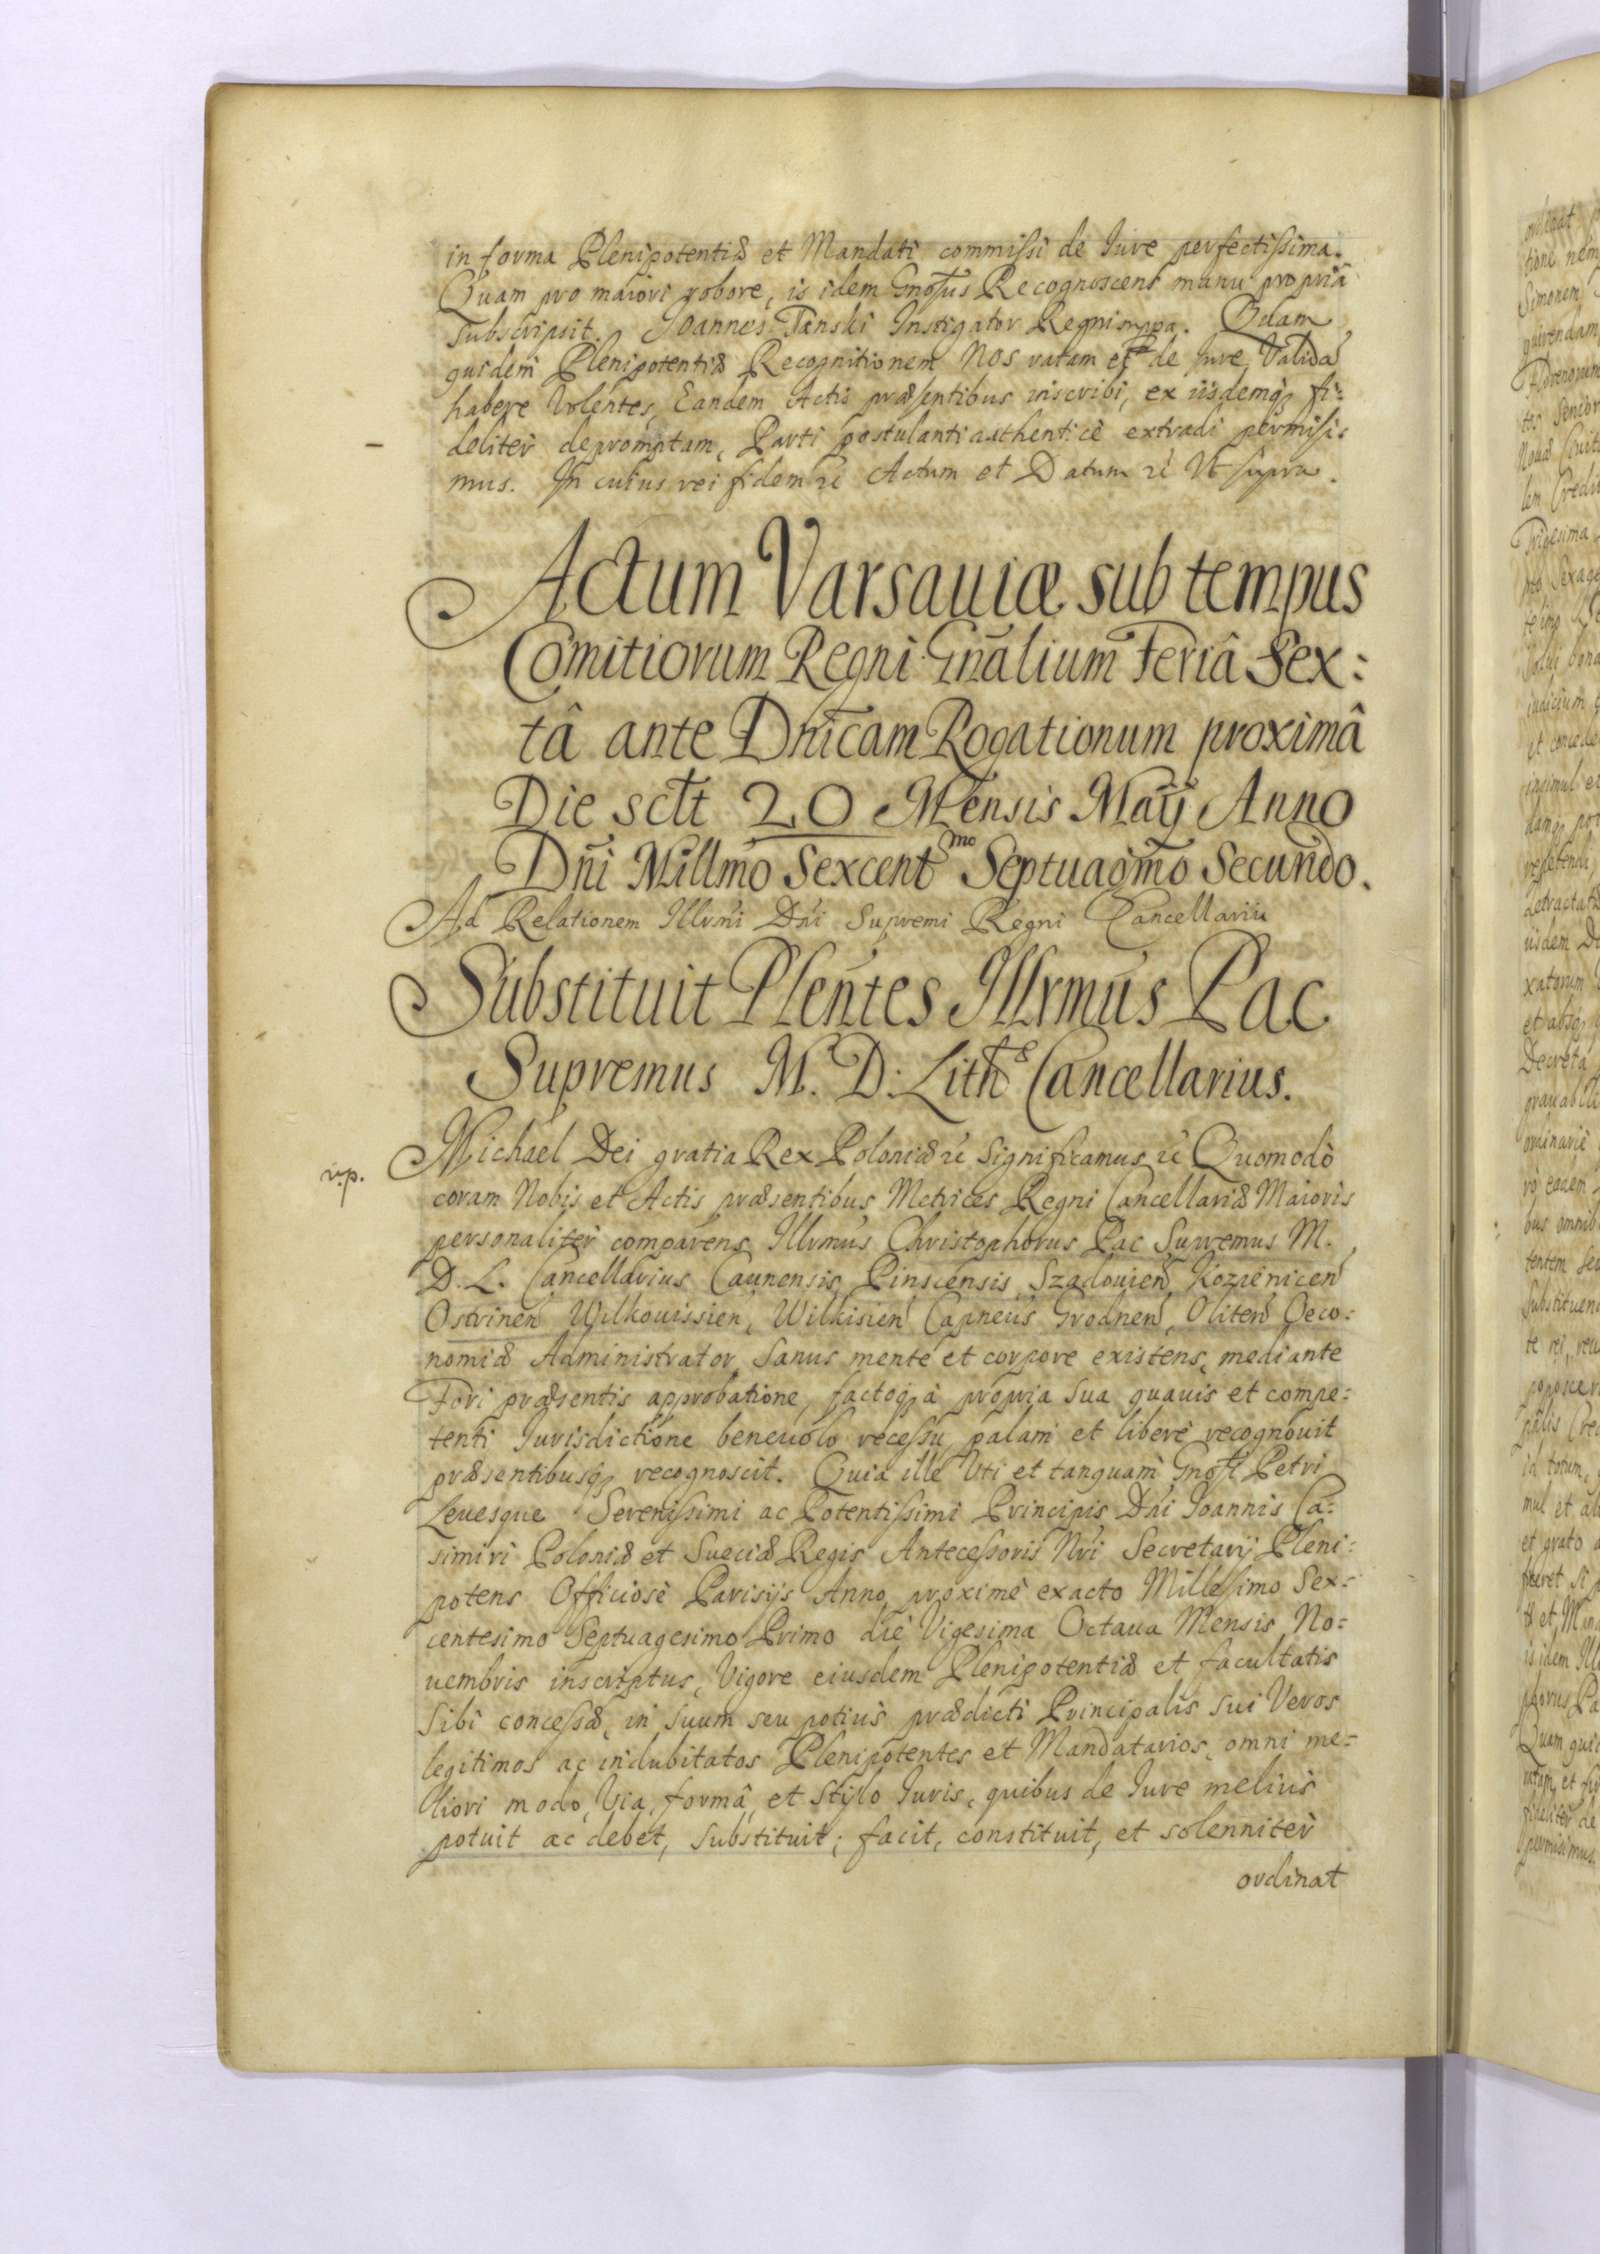 in forma Plenipotentiæ et Mandati commissi de Iure perfectissima.
Quam pro maiori robore, is idem Gnosus Recognoscens manu propriâ
subscripsit. Joannes Tanski Instigator Regni mppa. Qdam
quidem Plenipotentiæ Recognitionem Nos ratam et de Iure Validã
habere Volentes, Eandem Actis præsentibus inscribi, ex iisdemq fi:
deliter depromptam, Parti postulanti authenticè extradi permisi:
mus. In cuius rei fidem rc Actum et Datum rc Vt supra.
Actum Varsauiæ sub tempus
Comitiorum Regni Gnãlium Feriâ Sex:
tâ ante Dnicam Rogationum proximâ
Die sclt 20 Mensis Maÿ Anno
Dñi Millmo Sexcent^mo Septuagmo Secundo.
Ad Relationem Illrmi Dñi Supremi Regni Cancellarÿ
Substituit Plentes Illrmus Pac
Supremus M. D. Lith^æ Cancellarius.
v.p.
Michael Dei gratia Rex Poloniæ rc Significamus rc Quomodò
coram Nobis et Actis præsentibus Metrices Regni Cancellariæ Maioris
personalitèr comparens Illrmus Christophorus Pac Supremus M.
D. L. Cancellarius Caunensis, Pinscensis, Szadouien, Kozienicen
Ostrinen Wilkouissien, Wilkisien Capneus Grodnen, Oliten Oeco:
nomiæ Administrator, Sanus mente et corpore existens, mediante
Fori præsentis approbatione, factoq à propria sua quauis et compe:
tenti Iurisdictione beneuolo recessu, palam et liberè recognouit
præsentibusq recognoscit. Quia ille Vti et tanquam Gnosi Petri
Leuesque Serenissimi ac Potentissimi Principis Dñi Ioannis Ca:
simiri Poloniæ et Sueciæ Regis Antecessoris Nri Secretarÿ Pleni:
potens Officiosè Parisijs Anno proximè exacto Millesimo Sex:
centesimo Septuagesimo Primo die Vigesima Octaua Mensis No:
uembris inscriptus, Vigore eiusdem Plenipotentiæ et facultatis
Sibi concessæ, in suum seu potius prædicti Principalis sui Veros
legitimos ac indubitatos Plenipotentes et Mandatarios, omni me:
liori modo, Via, formâ, et Stylo Iuris, quibus de Iure melius
potuit ac debet, substituit; facit, constituit, et solennitèr
ordinat